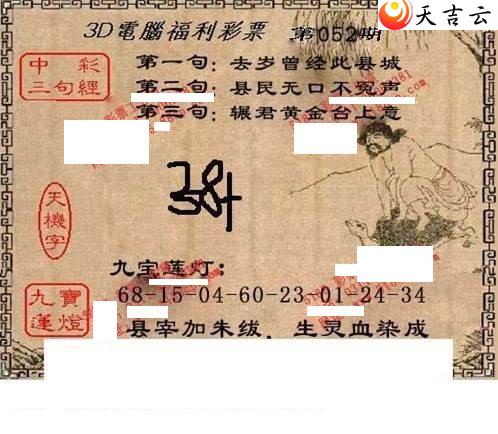 天吉云
3D電腦福利彩票 第052期
中彩
三句經
第一句：去岁曾经此县城
第二句：县民无口不冤声
第三句：辗君黄金台上意
天機字
九宝莲灯：
68-15-04-60-23-01-24-34
九寶
蓮燈
县宰加朱绂，生灵血染成